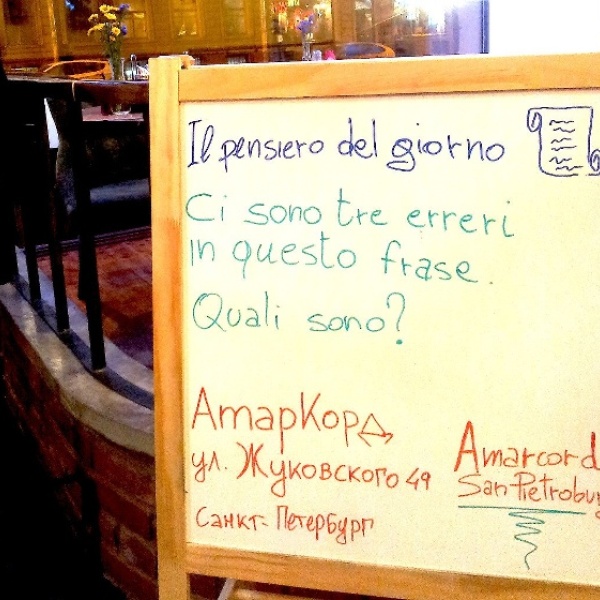 Il pensiero del giorno
Ci sono tre erreri
in questo frase.
Quali sono?
Амаркорд
ул. Жуковского 49
Санкт-Петербург
Amarcord
San Pietrobur